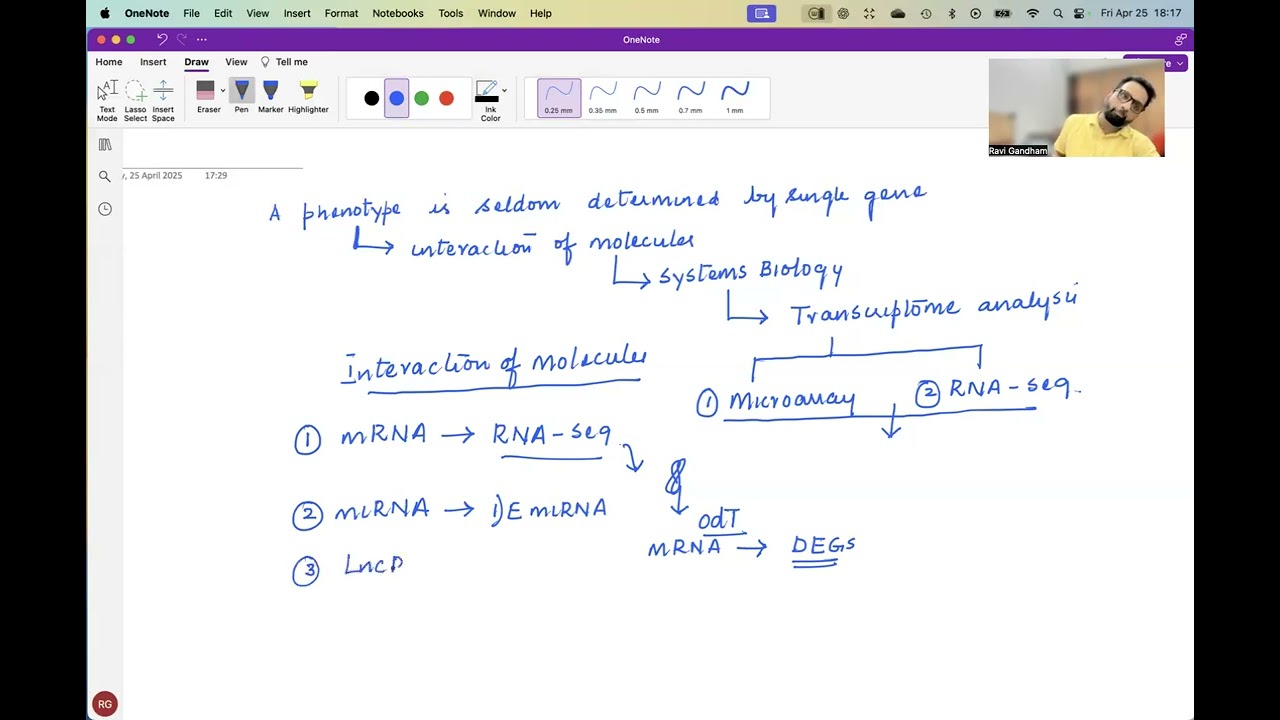 OneNote File Edit View Insert Format Notebooks Tools Window Help Fri Apr 25 18:17
OneNote
Home Insert Draw View Tell me
Text Mode
Lasso Select
Insert Space
Eraser
Pen
Marker
Highlighter
Ink Color
0.25 mm 0.35 mm 0.5 mm 0.7 mm 1 mm
Ravi Gandham
, 25 April 2025 17:29
A phenotype is seldom determined by single gene
interaction of molecules
Systems Biology
Transcriptome analysis
Interaction of molecules
① Microarray ② RNA-seq.
① mRNA → RNA-seq
② miRNA → 1) E miRNA
odT
mRNA → DEGs
③ Lnc
RG